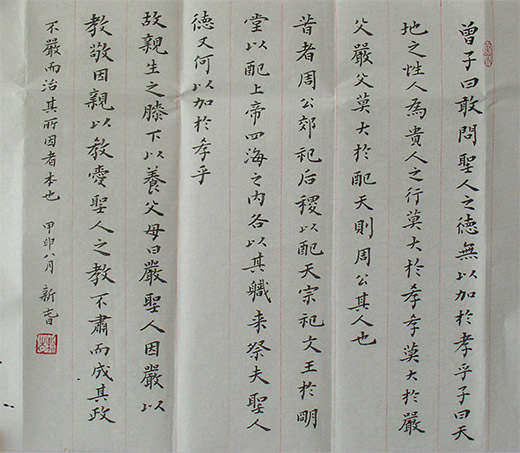 曾子曰敢問聖人之德無以加於孝乎子曰天
地之性人為貴人之行莫大於孝孝莫大於嚴
父嚴父莫大於配天則周公其人也
昔者周公郊祀后稷以配天宗祀文王於明
堂以配上帝四海之內各以其職来祭夫聖人
德又何以加於孝乎
故親生之膝下以養父母曰嚴聖人因嚴以
教敬因親以教愛聖人之教不肅而成其政
不嚴而治其所因者本也 甲申八月 新